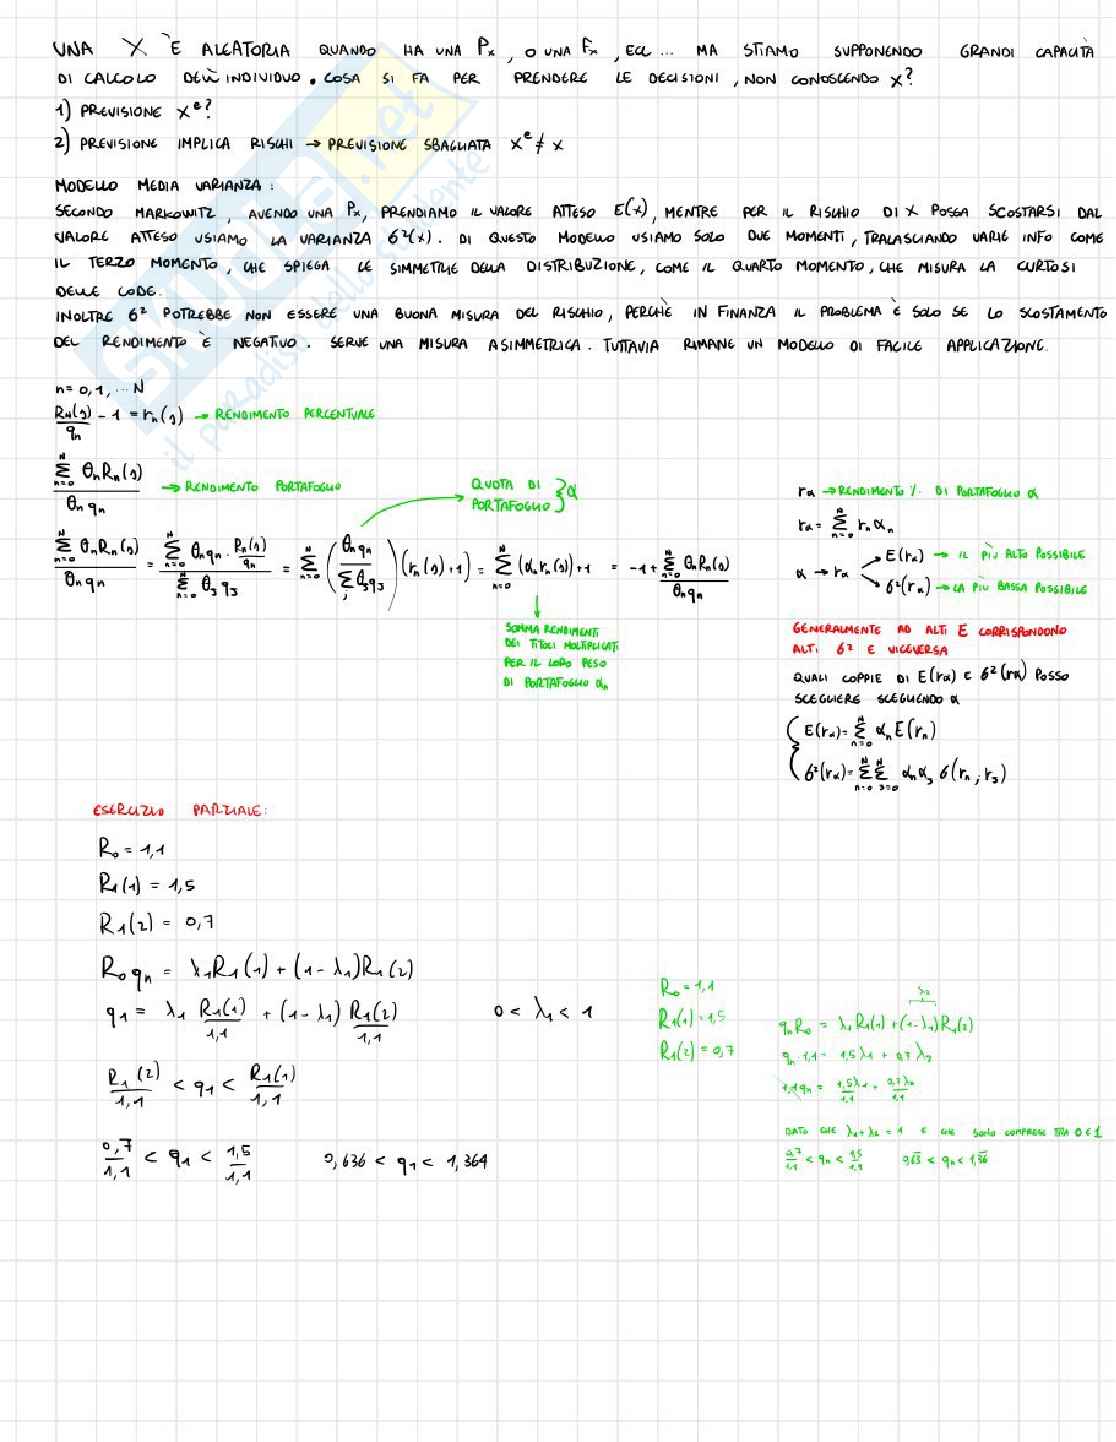 UNA X È ALEATORIA QUANDO HA UNA Pₓ, O UNA Fₓ, ECC... MA STIAMO SUPPONENDO GRANDI CAPACITÀ
DI CALCOLO DELL'INDIVIDUO. COSA SI FA PER PRENDERE LE DECISIONI, NON CONOSCENDO X?
1) PREVISIONE Xᵉ?
2) PREVISIONE IMPLICA RISCHI → PREVISIONE SBAGLIATA Xᵉ ≠ X
MODELLO MEDIA VARIANZA:
SECONDO MARKOWITZ, AVENDO UNA Pₓ, PRENDIAMO IL VALORE ATTESO E(X), MENTRE PER IL RISCHIO DI X POSSA SCOSTARSI DAL
VALORE ATTESO USIAMO LA VARIANZA σ²(X). DI QUESTO MODELLO USIAMO SOLO DUE MOMENTI, TRALASCIANDO VARIE INFO COME
IL TERZO MOMENTO, CHE SPIEGA LE SIMMETRIE DELLA DISTRIBUZIONE, COME IL QUARTO MOMENTO, CHE MISURA LA CURTOSI
DELLE CODE.
INOLTRE σ² POTREBBE NON ESSERE UNA BUONA MISURA DEL RISCHIO, PERCHÈ IN FINANZA IL PROBLEMA È SOLO SE LO SCOSTAMENTO
DEL RENDIMENTO È NEGATIVO. SERVE UNA MISURA ASIMMETRICA. TUTTAVIA RIMANE UN MODELLO DI FACILE APPLICAZIONE.
SKUOLA.net
il paradiso dello studente
n = 0, 1, ... N
Rₙ(s)/qₙ - 1 = rₙ(s) → RENDIMENTO PERCENTUALE
Σₙ₌₀ᴺ θₙRₙ(s) / θₙqₙ → RENDIMENTO PORTAFOGLIO
QUOTA DI
PORTAFOGLIO } α
Σₙ₌₀ᴺ θₙRₙ(s) / θₙqₙ = Σₙ₌₀ᴺ θₙqₙ · Rₙ(s)/qₙ / Σₙ₌₀ θⱼqⱼ = Σₙ₌₀ᴺ (θₙqₙ / Σⱼ θⱼqⱼ)(rₙ(s)+1) = Σₙ₌₀ᴺ (αₙrₙ(s))+1 = -1 + Σₙ₌₀ᴺ θₙRₙ(s) / θₙqₙ
SOMMA RENDIMENTI
DEI TITOLI MOLTIPLICATI
PER IL LORO PESO
DI PORTAFOGLIO αₙ
rα → RENDIMENTO % DI PORTAFOGLIO α
rα = Σₙ₌₀ᴺ rₙαₙ
α → rα
E(rα) → IL PIÙ ALTO POSSIBILE
σ²(rα) → LA PIÙ BASSA POSSIBILE
GENERALMENTE AD ALTI E CORRISPONDONO
ALTI σ² E VICEVERSA
QUALI COPPIE DI E(rα) E σ²(rα) POSSO
SCEGLIERE SCEGLIENDO α
{ E(rα) = Σₙ₌₀ᴺ αₙE(rₙ)
σ²(rα) = Σₙ₌₀ᴺ Σⱼ₌₀ᴺ αₙαⱼ σ(rₙ; rⱼ)
ESERCIZIO PARZIALE:
R₀ = 1,1
R₁(1) = 1,5
R₁(2) = 0,7
R₀qₙ = λ₁R₁(1) + (1-λ₁)R₁(2)
q₁ = λ₁ R₁(1)/1,1 + (1-λ₁) R₁(2)/1,1 0 < λ₁ < 1
R₁(2)/1,1 < q₁ < R₁(1)/1,1
0,7/1,1 < q₁ < 1,5/1,1 0,636 < q₁ < 1,364
R₀ = 1,1
R₁(1) = 1,5
R₁(2) = 0,7
λ₂
qₙR₀ = λ₁R₁(1) + (1-λ₁)R₁(2)
qₙ·1,1 = 1,5λ₁ + 0,7λ₂
1,1qₙ = 1,5λ₁/1,1 + 0,7λ₂/1,1
DATO CHE λ₁+λ₂ = 1 E CHE SONO COMPRESI TRA 0 E 1
0,7/1,1 < qₙ < 1,5/1,1 0,63 < qₙ < 1,36